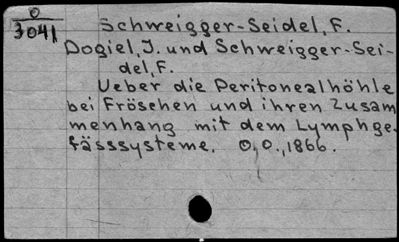 O
3041
Schweigger-Seidel, F.
Dogiel, J. und Schweigger-Sei-
del, F.
Ueber die Peritonealhöhle
bei Fröschen und ihren Zusam
menhang mit dem Lymphge-
fässsysteme. O, O., 1866.